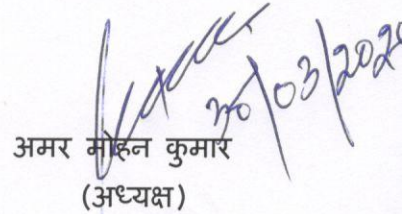 30/03/202
अमर मोहन कुमार
(अध्यक्ष)